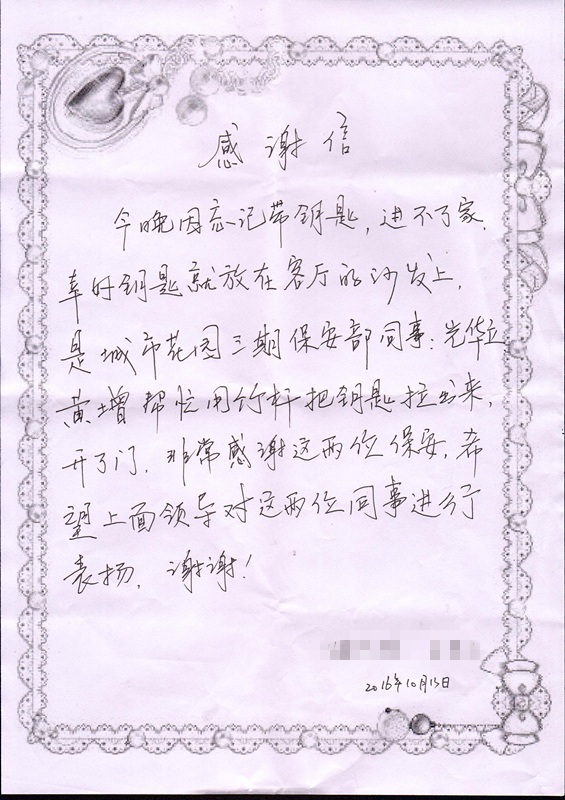 感谢信
今晚因忘记带钥匙，进不了家.
幸好钥匙就放在客厅的沙发上，
是城市花园三期保安部同事：
黄增帮忙用竹杆把钥匙拉出来，
开了门. 非常感谢这两位保安. 希
望上面领导对这两位同事进行
表扬. 谢谢！
2016年10月13日